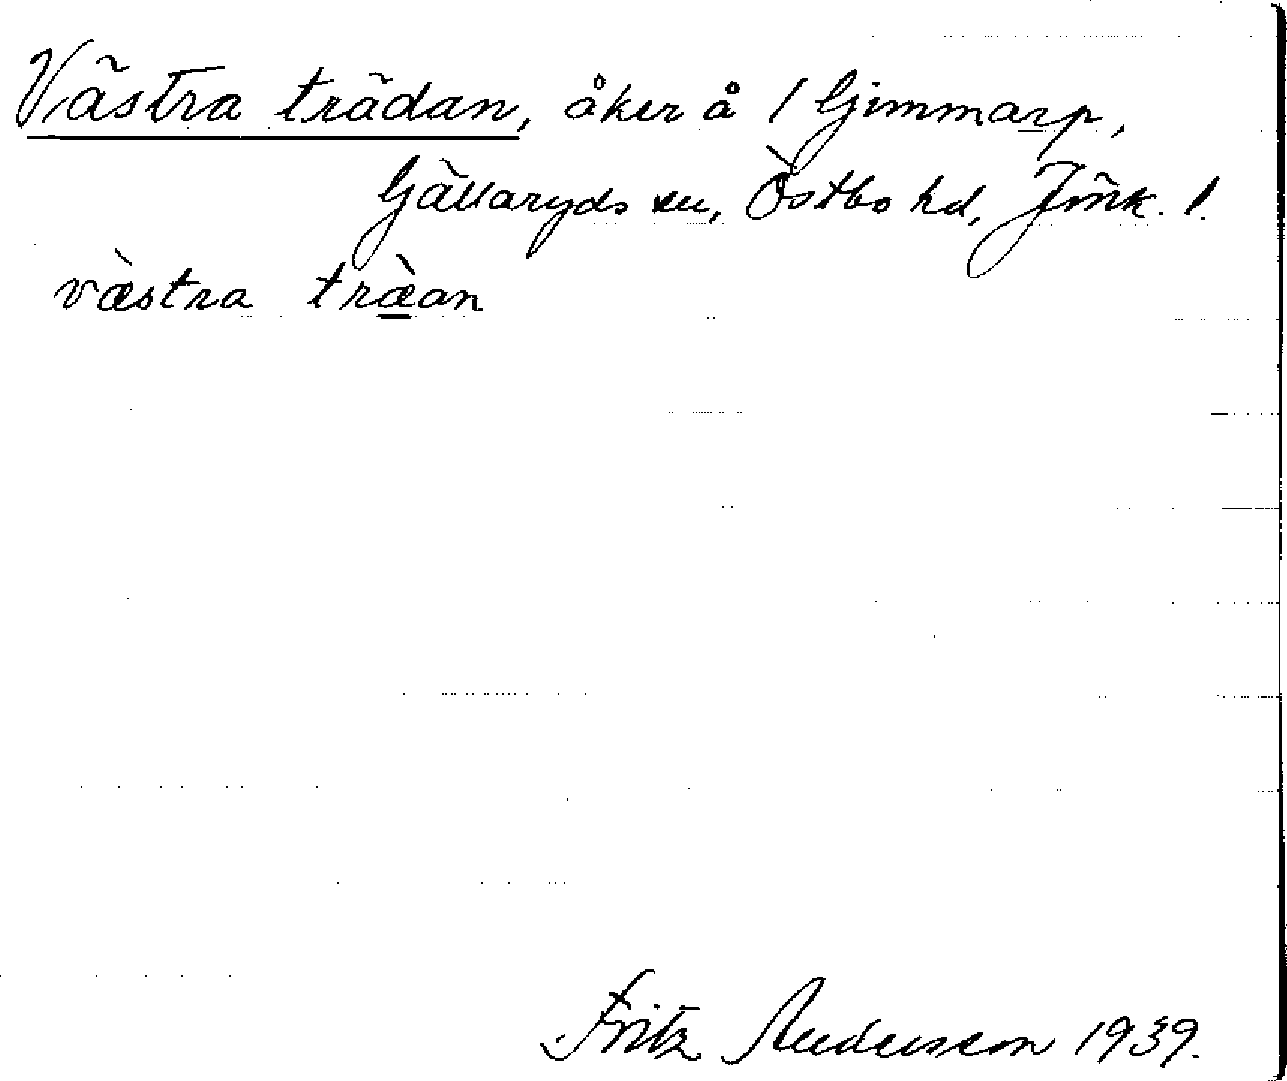 Västra trädan, åker å 1 Gimmarp,
Gällaryds sn, Östbo hd, Jönk. l.
væ̀stra træ̀an
Fritz Andersson 1939.